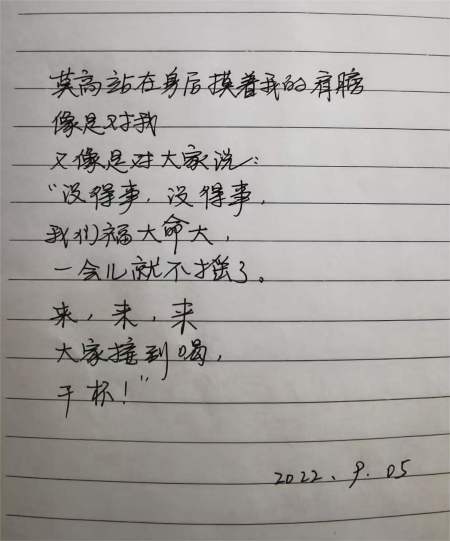 莫高站在身后摸着我的肩膀
像是对我
又像是对大家说：
“没得事，没得事，
我们福大命大，
一会儿就不摇了。
来，来，来
大家接到喝，
干杯！”
2022.9.05